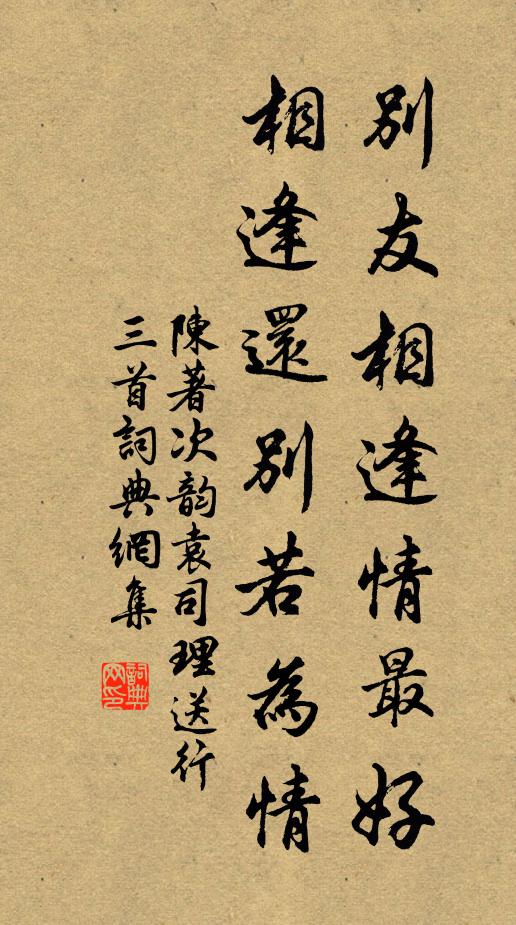 別友相逢情最好
相逢還別若為情
陳著次韵袁司理送行
三首詞典網集
詞典网印